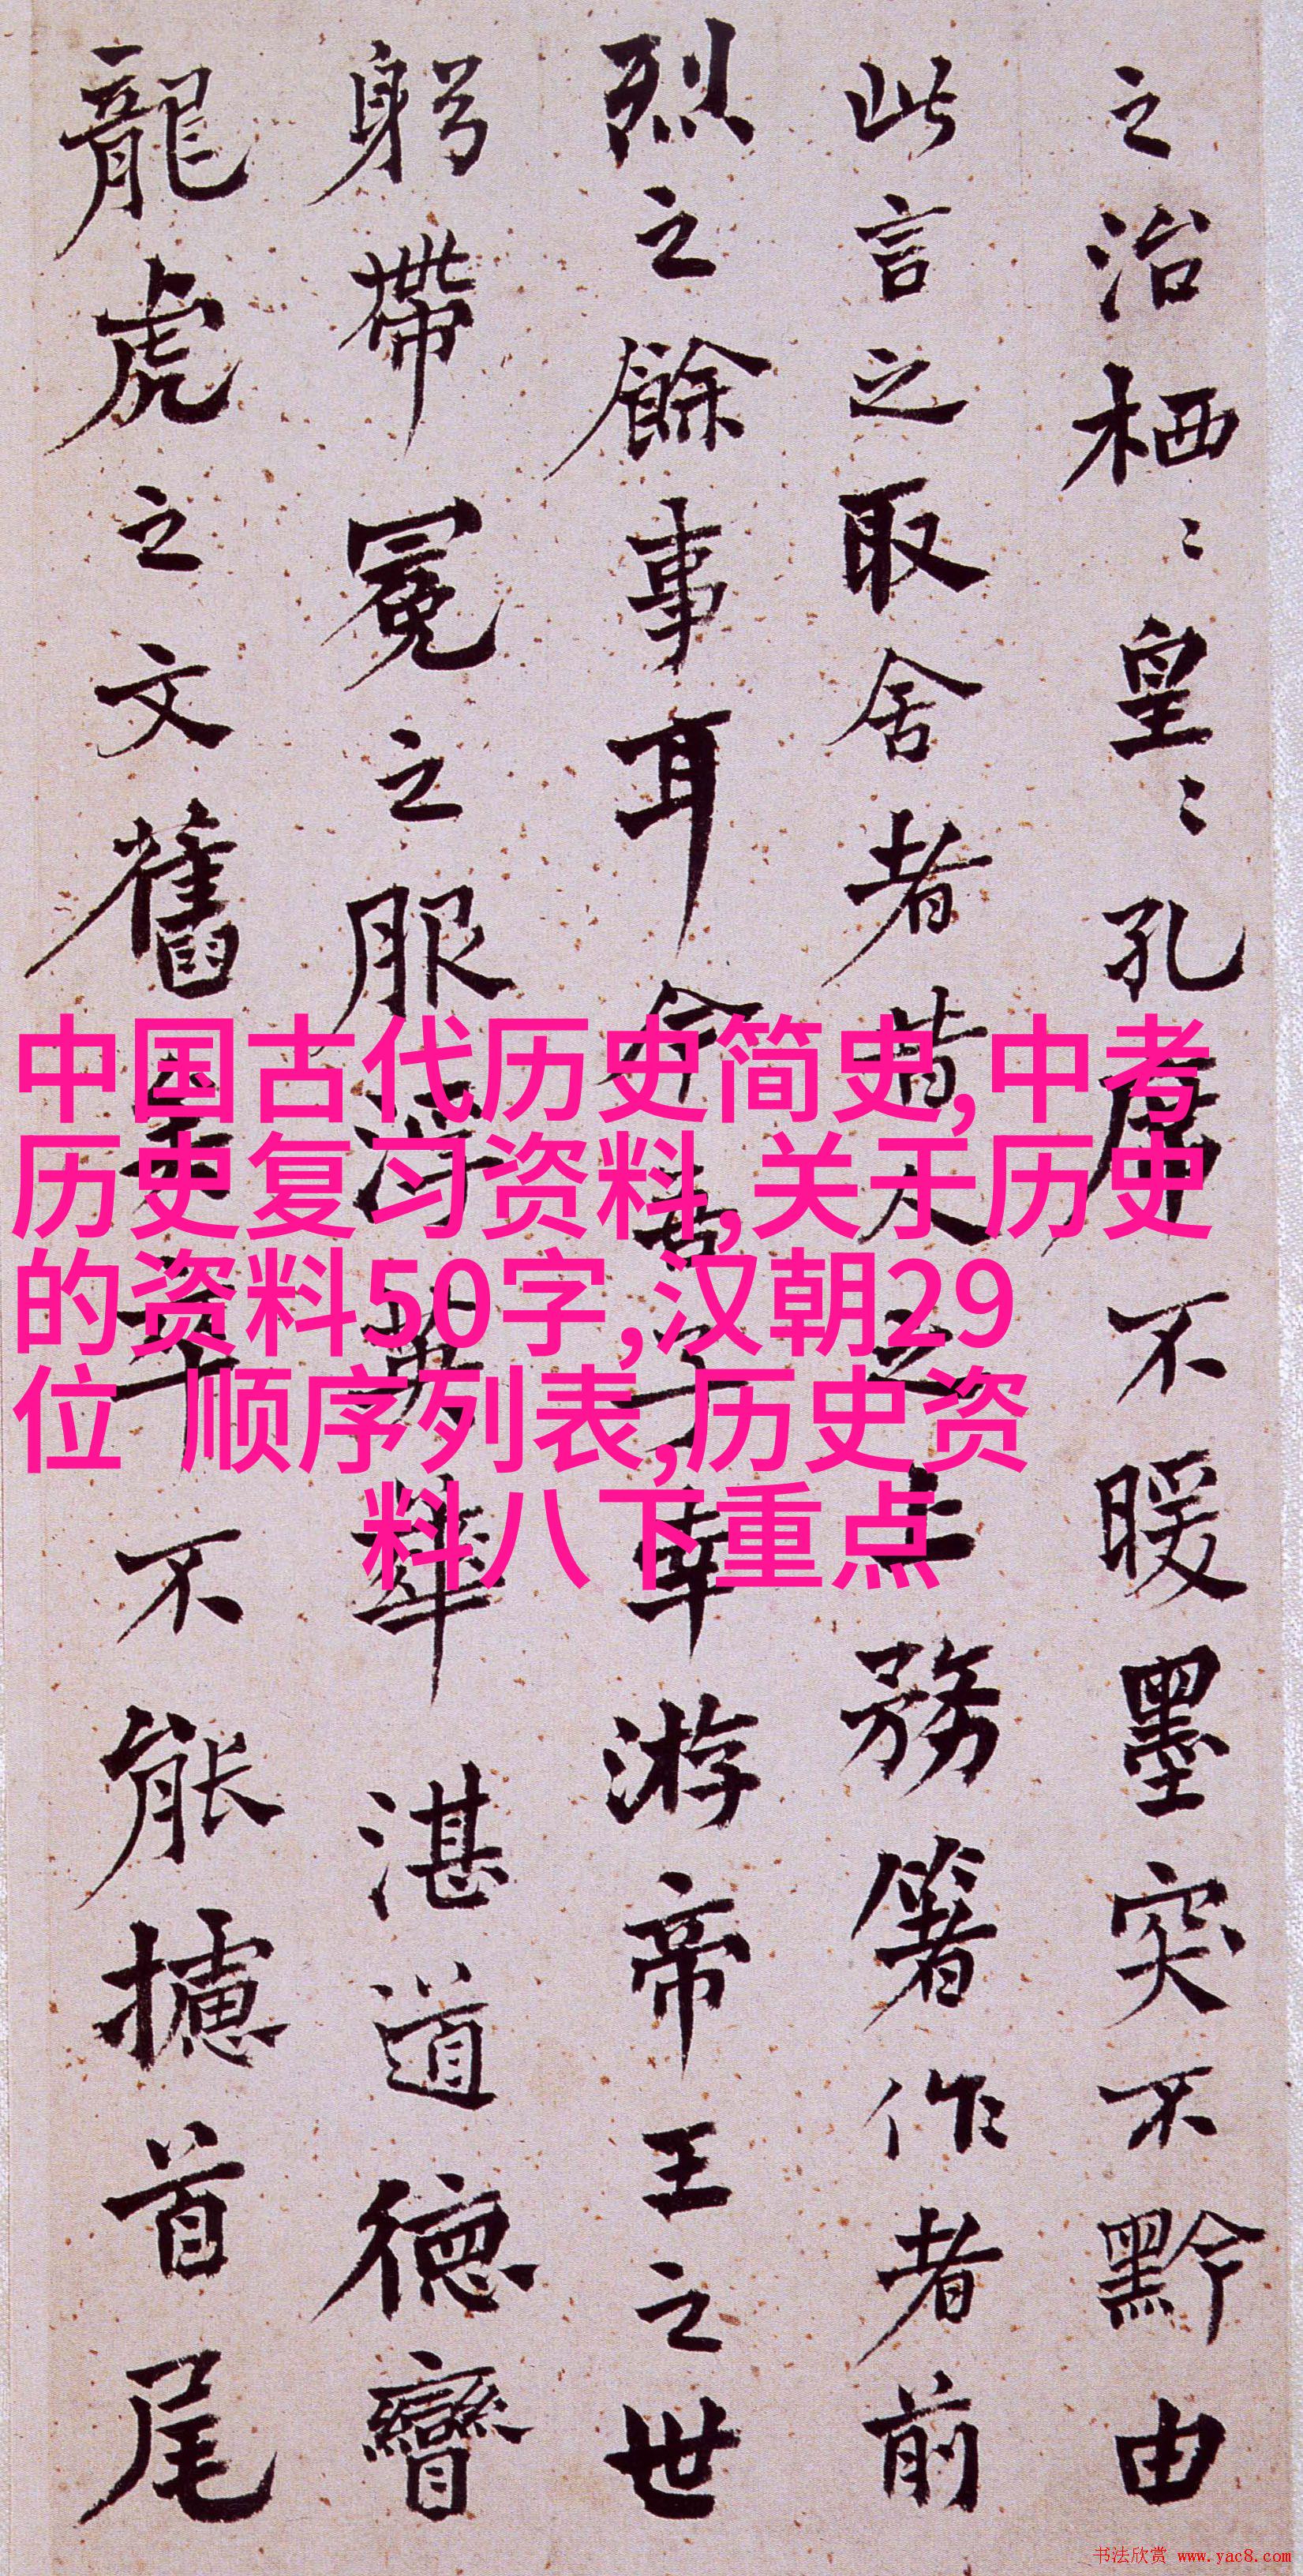 之治栖〻皇〻孔席不暖墨突不黔由
此言之取舍者昔人之上務著作者前
烈之餘事耳今吾子幸游帝王之世
躬帶冕之服浮英華湛道德矕
龍虎之文舊矣卒不能攄首尾
中国古代历史简史,中考
历史复习资料,关于历史
的资料50字,汉朝29
位 顺序列表,历史资
料八下重点
书法欣赏 www.yac8.com